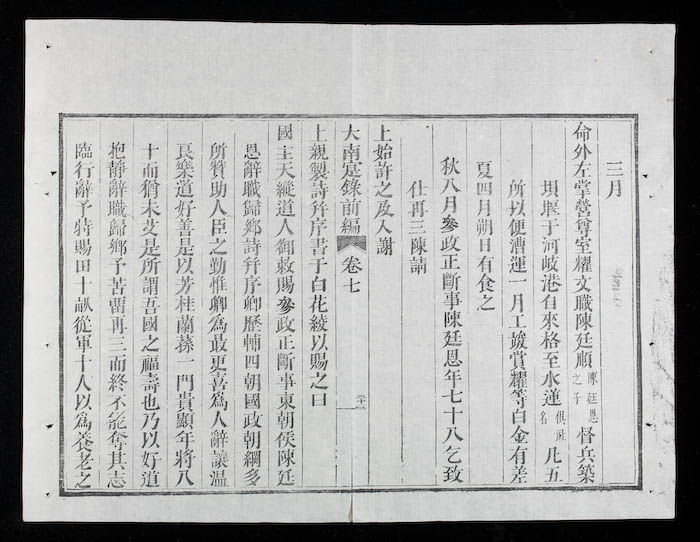 三月
命外左掌營尊室耀文職陳廷順陳廷恩之子督兵築
垻堰于河岐港自來格至水蓮俱社名凡五
所以便漕運一月工竣賞耀等白金有差
夏四月朔日有食之
秋八月參政正斷事陳廷恩年七十八乞致
仕再三陳請
上始許之及入謝
大南寔錄前編 卷七 二十一
上親製詩幷序書于白花綾以賜之曰
國主天縱道人御敕賜參政正斷事東朝侯陳廷
恩辭職歸鄉詩幷序卿歷輔四朝國政朝綱多
所贊助人臣之勤惟卿為最更喜為人辭讓溫
良樂道好善是以芳桂蘭蓀一門貴顯年將八
十而猶未艾是所謂吾國之福壽也乃以好道
抱靜辭職歸鄉予苦留再三而終不能奪其志
臨行辭予特賜田十畝從軍十人以為養老之